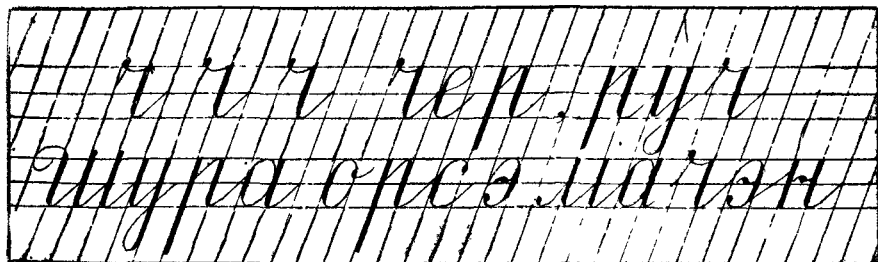 ч ч ч чер, руч
Шура орсэ мачэн